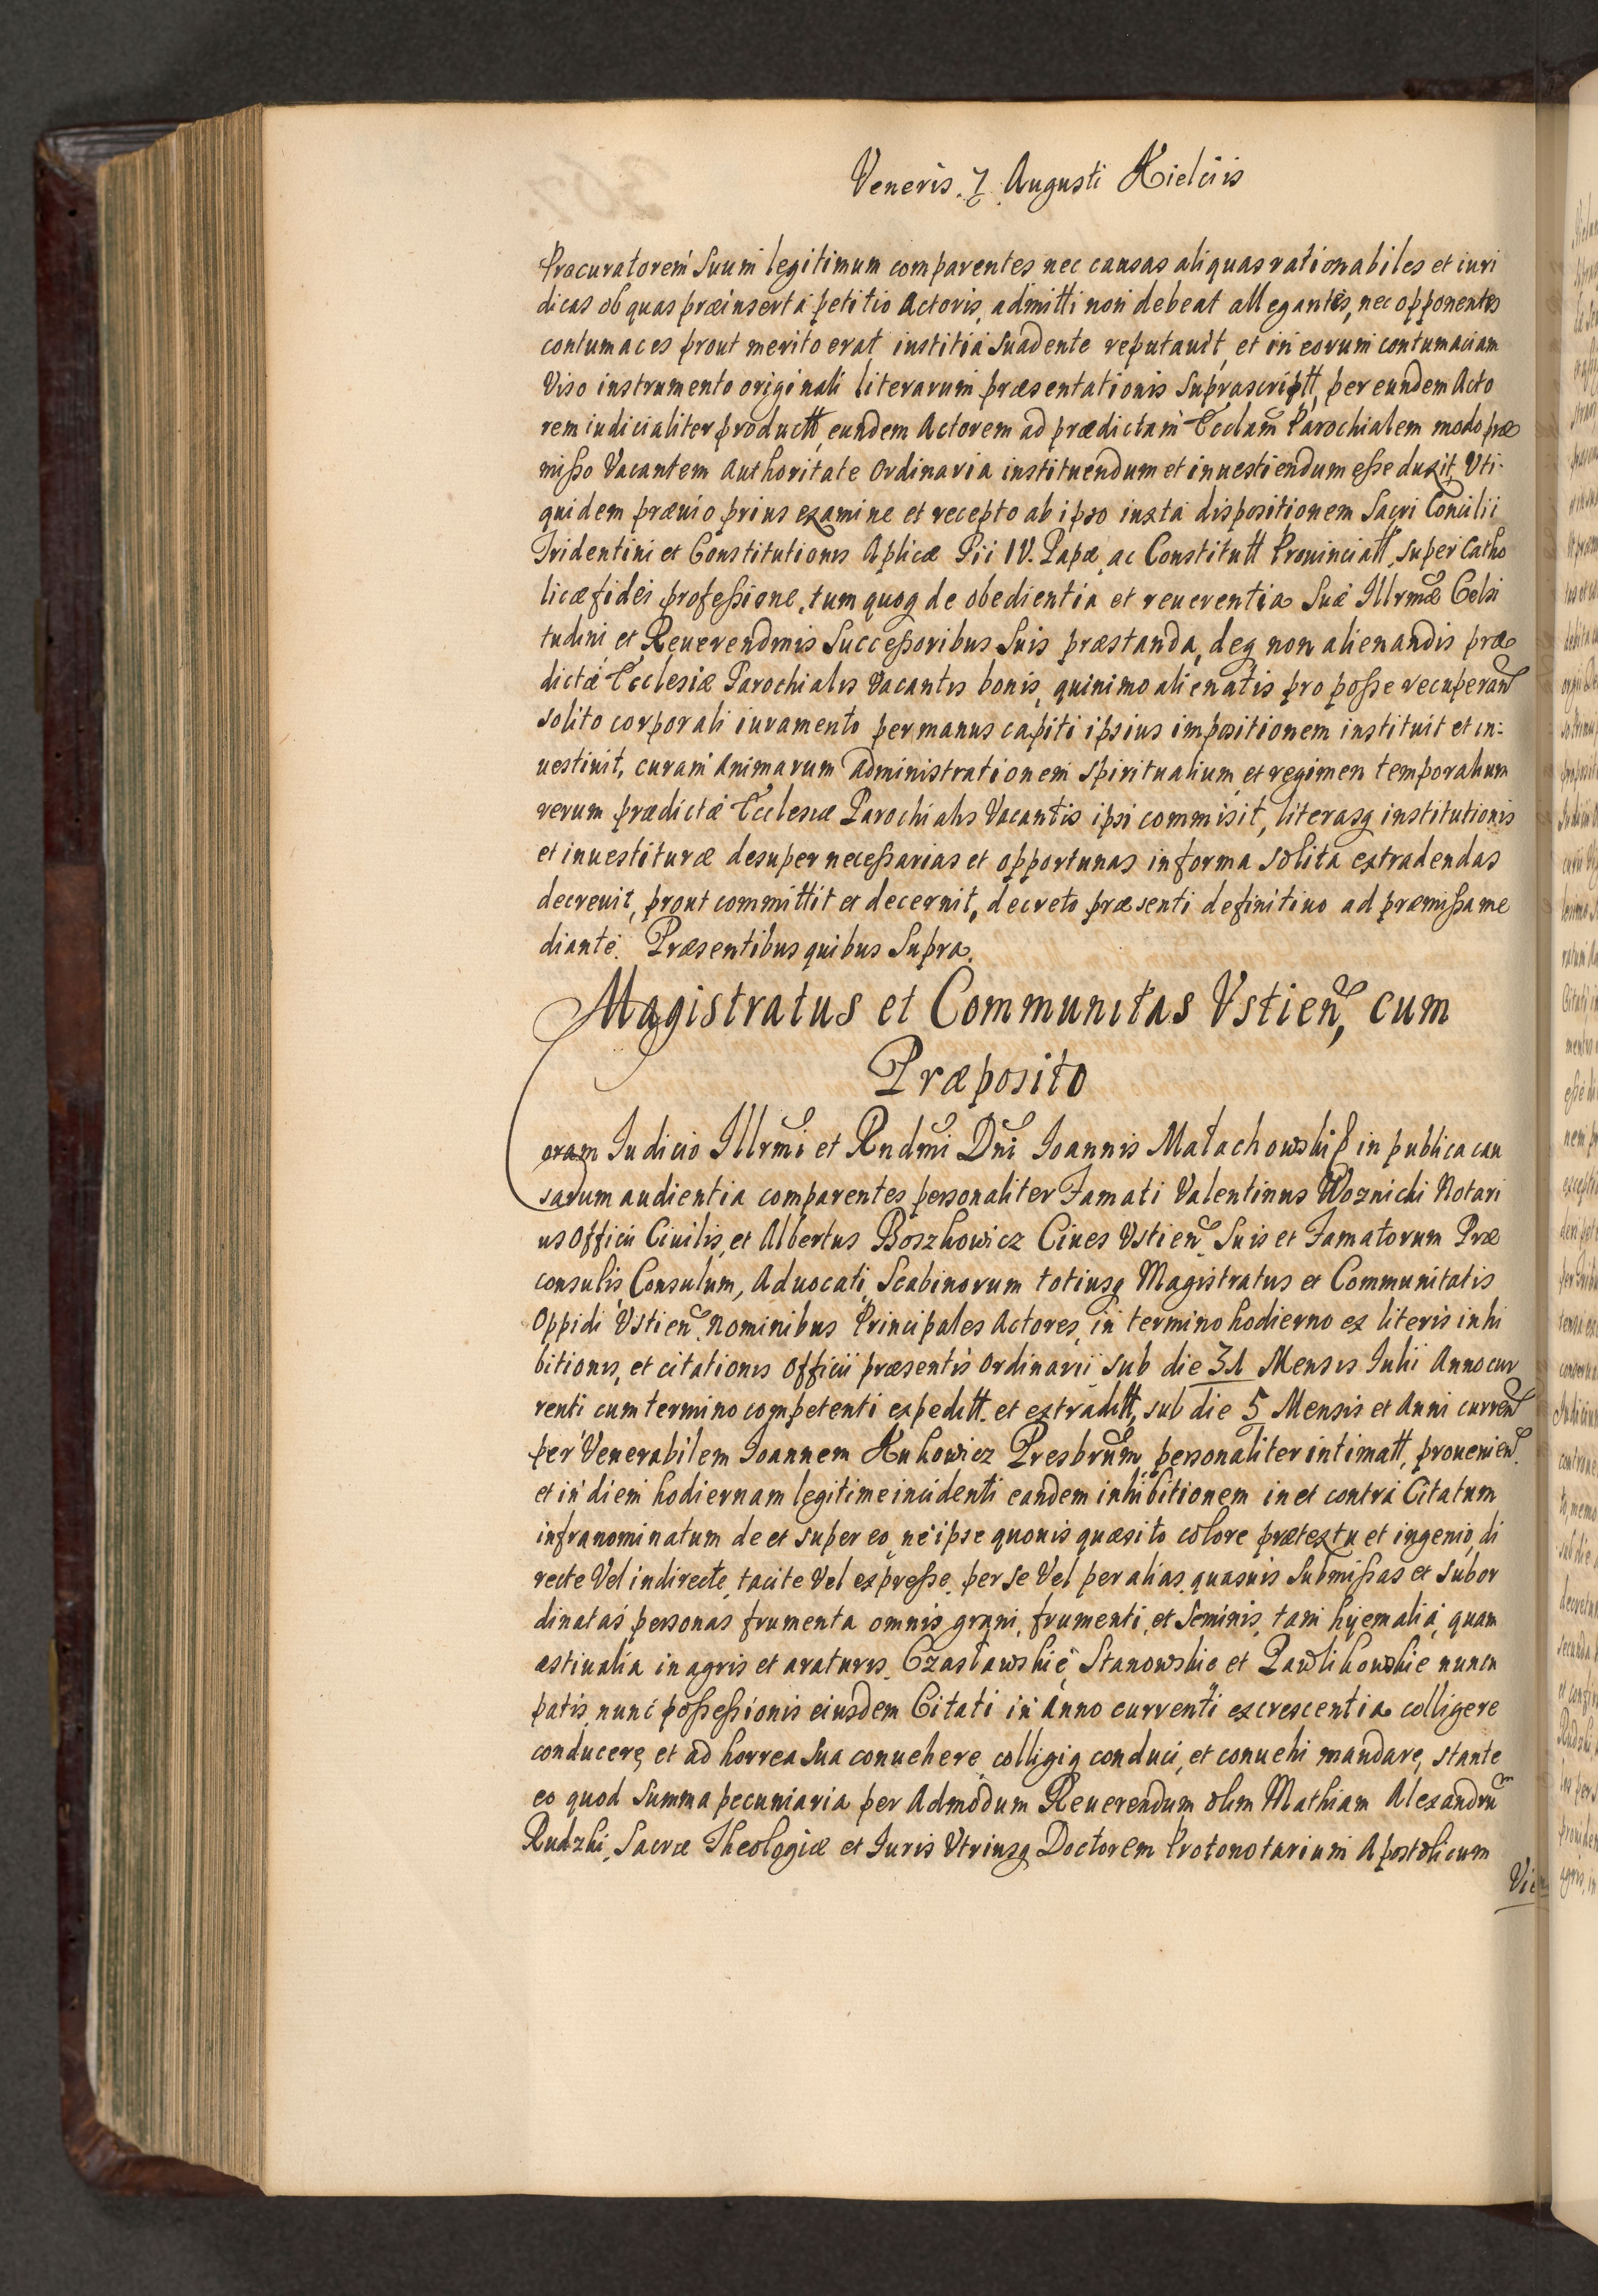 Veneris. 7. Augusti Kielciis
Procuratorem suum legitimum comparentes nec causas aliquas rationabiles et iuri
dicas ob quas præinserta petitio Actoris, admitti non debeat allegantes, nec opponentes
contumaces prout merito erat iustitia suadente reputauit, et in eorum contumaciam
Viso instrumento originali literarum præsentationis suprascriptt, per eundem Acto
rem iudicialiter productto, eundem Actorem ad prædictam Ecclam Parochialem modo præ
misso Vacantem Authoritate Ordinaria instituendum et inuestiendum esse duxit, Vti-
quidem præuio prius examine et recepto ab ipso iuxta dispositionem Sacri Concilii
Tridentini et Constitutionis Aplicæ Pii IV. Papæ, ac Constitutt Prouinciatt, super Catho
licæ fidei professione, tum quoq de obedientia et reuerentia Suæ Illrmæ Celsi
tudini et Reuerendmis Successoribus Suis præstanda, deq non alienandis præ
dictæ Ecclesiæ Parochialis Vacantis bonis, quinimo alienatis pro posse recuperand
solito corporali iuramento per manus capiti ipsius impositionem instituit et in-
uestiuit, curam Animarum administrationem spiritualium, et regimen temporalium
rerum prædictæ Ecclesiæ Parochialis Vacantis ipsi commisit, literasq institutionis
et inuestituræ desuper necessarias et opportunas in forma solita extradendas
decreuit, prout committit et decernit, decreto præsenti definitiuo ad præmissa me
diante. Præsentibus quibus Supra.
Magistratus et Communitas Vstien, cum
Præposito
Coram Iudicio Illrmi et Rndmi Dni Ioannis Małachowski in publica cau
sarum audientia comparentes personaliter Famati Valentinus Woznicki Notari
us Officii Ciuilis, et Albertus Boszkowicz Ciues Vstien. Suis et Famatorum Præ
consulis, Consulum, Aduocati, Scabinorum totiusq Magistratus et Communitatis
Oppidi Vstien. Nominibus Principales Actores, in termino hodierno ex literis inhi
bitionis, et citationis Officii præsentis Ordinarii sub die 31 Mensis Iulii Anno cur
renti cum termino competenti expeditt. et extraditt, sub die 5 Mensis et Anni current
per Venerabilem Ioannem Kukowicz Presbrum, personaliter intimatt, prouenien.
et in diem hodiernam legitime incidenti eandem inhibitionem in et contra Citatum
infranominatum de et super eo, ne ipse quouis quæsito colore prætextu et ingenio, di
recte Vel indirecte, tacite Vel expresse, per se Vel per alias quasuis submissas et subor
dinatas personas, frumenta omnis grani, frumenti, et seminis, tam hyemalia, quam
æstiualia in agris et araturis, Czasławskie, Stanowskie et Pawlikowskie nuncu
patis, nunc possessionis eiusdem Citati in Anno currenti excrescentia colligere
conducere, et ad horrea sua conuehere, colligiq conduci, et conuehi mandare, stante
eo quod summa pecuniaria per Admodum Reuerendum olim Mathiam Alexandru
Rudzki, Sacræ Theologiæ et Iuris Vtriusq Doctorem Protonotarium Apostolicum